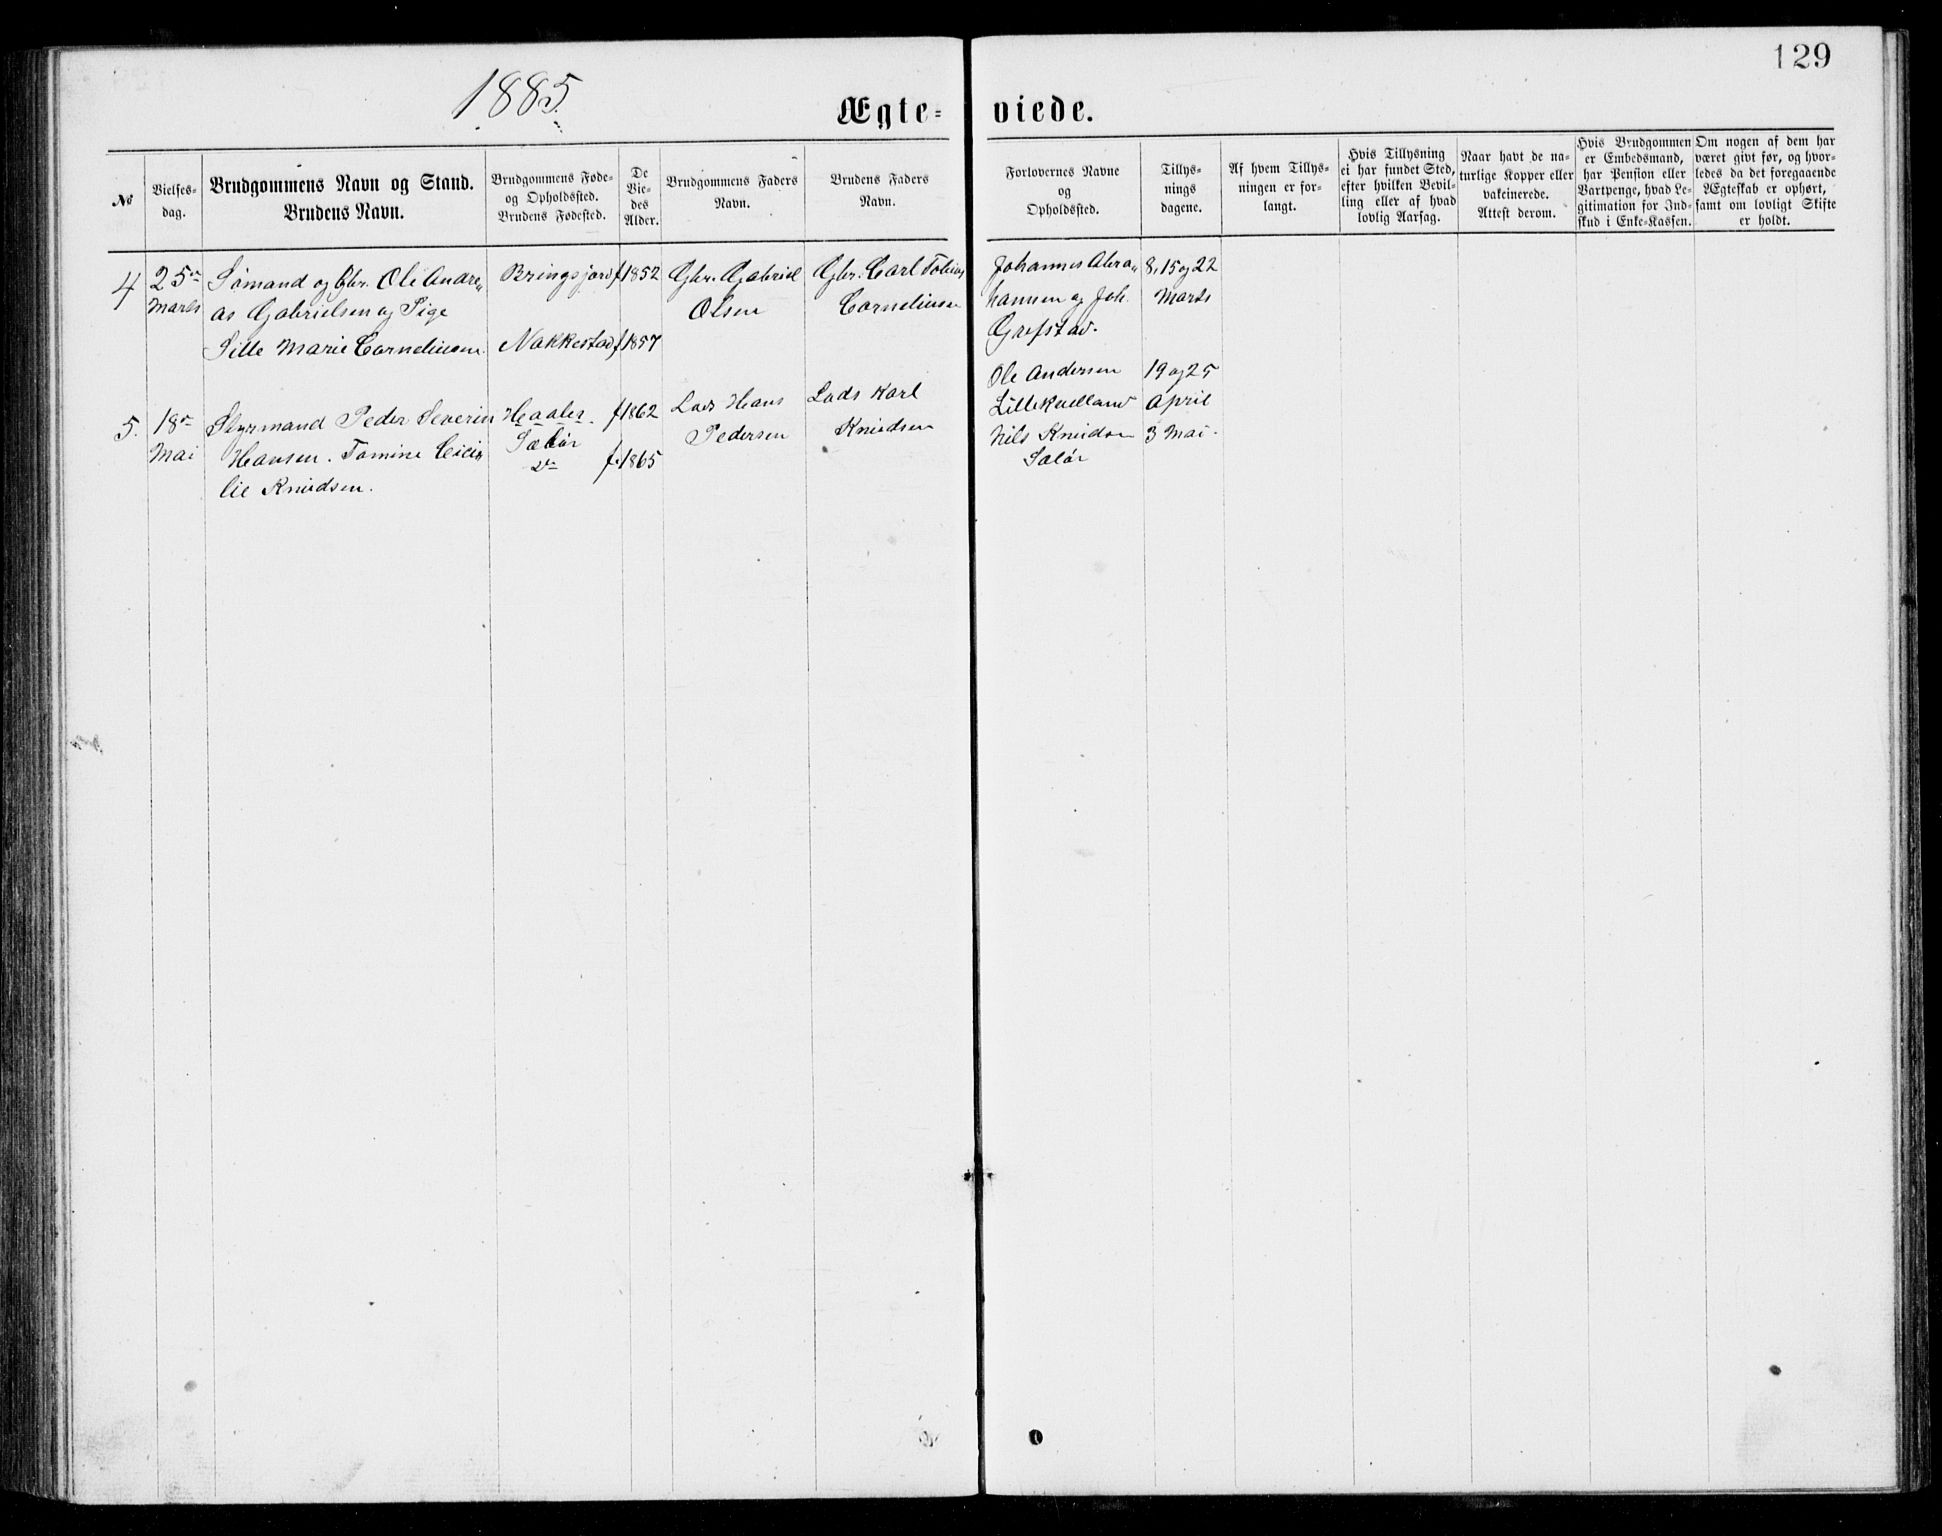 129
1885.
Ægte= viede.
№
Vielses=
dag.
Brudgommens Navn og Stand.
Brudens Navn.
Brudgommens Føde=
og Opholdssted.
Brudens Fødested.
De
Vie=
des
Alder.
Brudgommens Faders
Navn.
Brudens Faders
Navn.
Forlovernes Navne
og
Opholdssted.
Tillys=
nings
dagene.
Af hvem Tillys=
ningen er for=
langt.
Hvis Tillysning
ei har fundet Sted,
efter hvilken Bevil=
ling eller af hvad
lovlig Aarsag.
Naar havt de na=
turlige Kopper eller
vakcinerede.
Attest derom.
Hvis Brudgommen
er Embedsmand,
har Pension eller
Vartpenge, hvad Le=
gitimation for Ind=
skud i Enke=Kassen.
Om nogen af dem har
været givt før, og hvor=
ledes da det foregaaende
Ægteskab er ophørt,
samt om lovligt Skifte
er holdt.
4
25de
Marts
Sømand og Gbr. Ole Andre„
as Gabrielsen og Pige
Sille Marie Corneliusen.
Bringsjord
Nakkestad
f 1852
f 1857
Gbr. Gabriel
Olsen
Gbr. Carl Tobias
Corneliusen
Johannes Abra„
hamsen og Joh.
Grefstad.
8, 15 og 22
Marts
5.
18de
Mai
Styrmand Peder Severin
Hansen. Tomine Ceci„
lie Knudsen.
Haaler.
Sælør
do
f 1862
f. 1865
Lods Hans
Pedersen
Lods Karl
Knudsen
Ole Andersen
Lillekvelland
Nils Knudsen
Sælør
19 og 25
April
3 Mai.